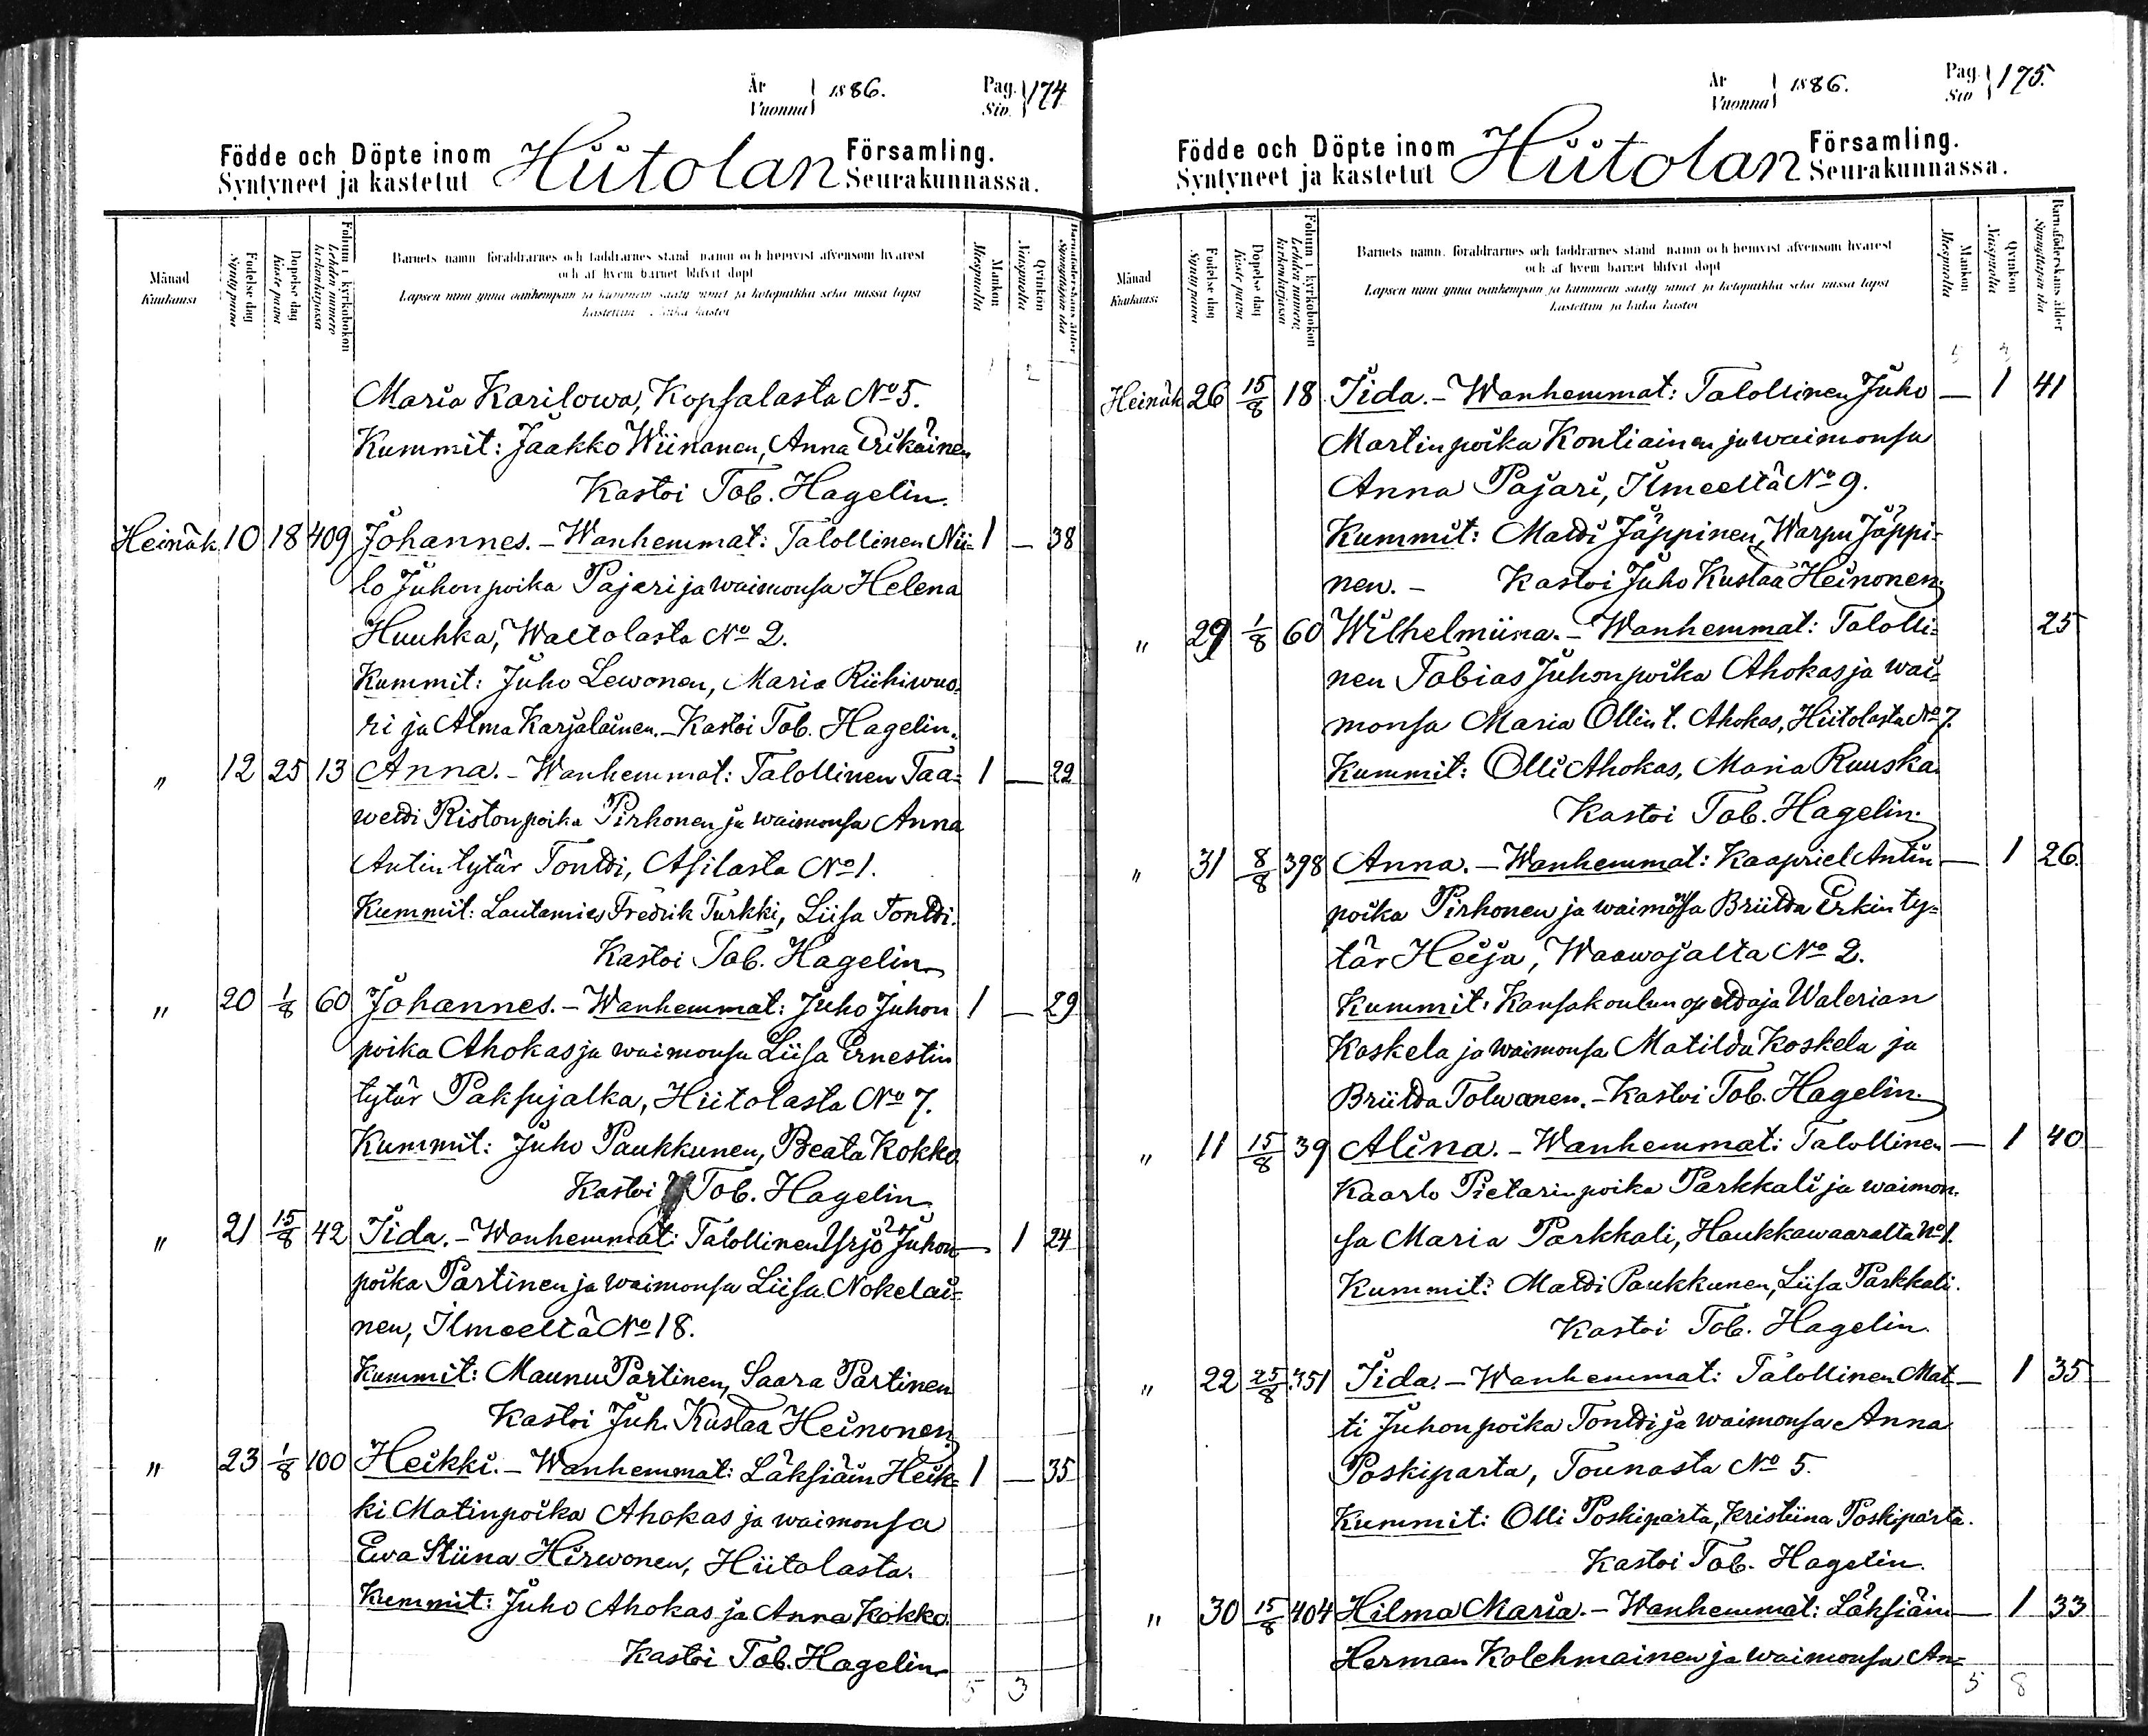 År Vuonna 1886. Pag. Siv. 174
Födde och Döpte inom Hiitolan Församling.
Syntyneet ja kastetut Seurakunnassa.
Månad Kuukausi
Födelse dag Syntypäivä
Döpelse dag Kastepäivä
Folium i kyrkoboken Lehden numero kirkonkirjassa
Barnets namn, föräldrarnes och faddrarnes stånd, namn och hemvist äfvensom hvarest
och af hvem barnet blifvit döpt
Lapsen nimi ynnä vanhempain ja kummein sääty, nimet ja kotopaikka sekä missä lapsi
kastettiin ja kuka kastoi
Mankön Miespuolta
Qvinkön Naispuolta
Barnaföderskans ålder Synnyttäjän ikä
1 2
Maria Karilowa, Kopsalasta No 5.
Kummit: Jaakko Wiinanen, Anna Erikäinen
Kastoi Tob. Hagelin.
Heinäk. 10 18 409 Johannes. - Wanhemmat: Talollinen Nii= 1 — 38
lo Juhonpoika Pajari ja waimonsa Helena
Huuhka, Waetolasta No 2.
Kummit: Juho Lewonen, Maria Riihiwuo=
ri ja Alma Karjalainen. - Kastoi Tob. Hagelin.
" 12 25 13 Anna. - Wanhemmat: Talollinen Taa= 1 — 22
wetti Ristonpoika Pirhonen ja waimonsa Anna
Antintytär Tontti, Asilasta No 1.
Kummit: Lautamies Fredrik Turkki, Liisa Tontti.
Kastoi Tob. Hagelin
" 20 1/8 60 Johannes. - Wanhemmat: Juho Juhon 1 — 29
poika Ahokas ja waimonsa Liisa Ernestin
tytär Paksujalka, Hiitolasta No 7.
Kummit: Juho Paukkunen, Beata Kokko
Kastoi Tob. Hagelin
" 21 15/8 42 Iida. - Wanhemmat: Talollinen Yrjö Juhon — 1 24
poika Partinen ja waimonsa Liisa Nokelai=
nen, Ilmeeltä No 18.
Kummit: Maunu Partinen, Saara Partinen
Kastoi Juh. Kustaa Heinonen
" 23 1/8 100 Heikki. - Wanhemmat: Läksiäin Heik= 1 — 35
ki Matinpoika Ahokas ja waimonsa
Ewa Stiina Hirwonen, Hiitolasta.
Kummit: Juho Ahokas ja Anna Kokko.
Kastoi Tob. Hagelin
5 3
År Vuonna 1886. Pag. Siv 175.
Födde och Döpte inom Hiitolan Församling.
Syntyneet ja kastetut Seurakunnassa.
Månad Kuukausi
Födelse dag Syntypäivä
Döpelse dag Kastepäivä
Folium i kyrkoboken Lehden numero kirkonkirjassa
Barnets namn, föräldrarnes och faddrarnes stånd, namn och hemvist äfvensom hvarest
och af hvem barnet blifvit döpt
Lapsen nimi ynnä vanhempain ja kummein sääty, nimet ja kotopaikka sekä missä lapsi
kastettiin ja kuka kastoi
Mankön Miespuolta
Qvinkön Naispuolta
Barnaföderskans ålder Synnyttäjän ikä
5 3
Heinäk 26 15/8 18 Iida. - Wanhemmat: Talollinen Juho — 1 41
Martinpoika Kontiainen ja waimonsa
Anna Pajari, Ilmeeltä No 9.
Kummit: Matti Jäppinen, Warpu Jäppi=
nen. - Kastoi Juho Kustaa Heinonen.
" 29 1/8 60 Wilhelmiina. - Wanhemmat: Talolli= 25
nen Tobias Juhonpoika Ahokas ja wai=
monsa Maria Ollin t. Ahokas, Hiitolasta No 7.
Kummit: Olli Ahokas, Maria Ruuska.
Kastoi Tob. Hagelin.
" 31 8/8 398 Anna. - Wanhemmat: Kaapriel Antin — 1 26.
poika Pirhonen ja waimonsa Briitta Erkin ty=
tär Heijä, Waawojalta No 2.
Kummit: Kansakoulun opettaja Walerian
Koskela ja waimonsa Matilda Koskela ja
Briitta Tolwanen. - Kastoi Tob. Hagelin.
" 11 15/8 39 Alina. - Wanhemmat: Talollinen — 1 40
Kaarlo Pietarinpoika Parkkali ja waimon=
sa Maria Parkkali, Haukkawaaralta No 1.
Kummit: Matti Paukkunen, Liisa Parkkali.
Kastoi Tob. Hagelin.
" 22 25/8 351 Iida. - Wanhemmat: Talollinen Mat — 1 35
ti Juhonpoika Tontti ja waimonsa Anna
Poskiparta, Tounasta No 5.
Kummit: Olli Poskiparta, Kristiina Poskiparta.
Kastoi Tob. Hagelin.
" 30 15/8 404 Hilma Maria. - Wanhemmat: Läksiäin — 1 33
Herman Kolehmainen ja waimonsa An=
5 8